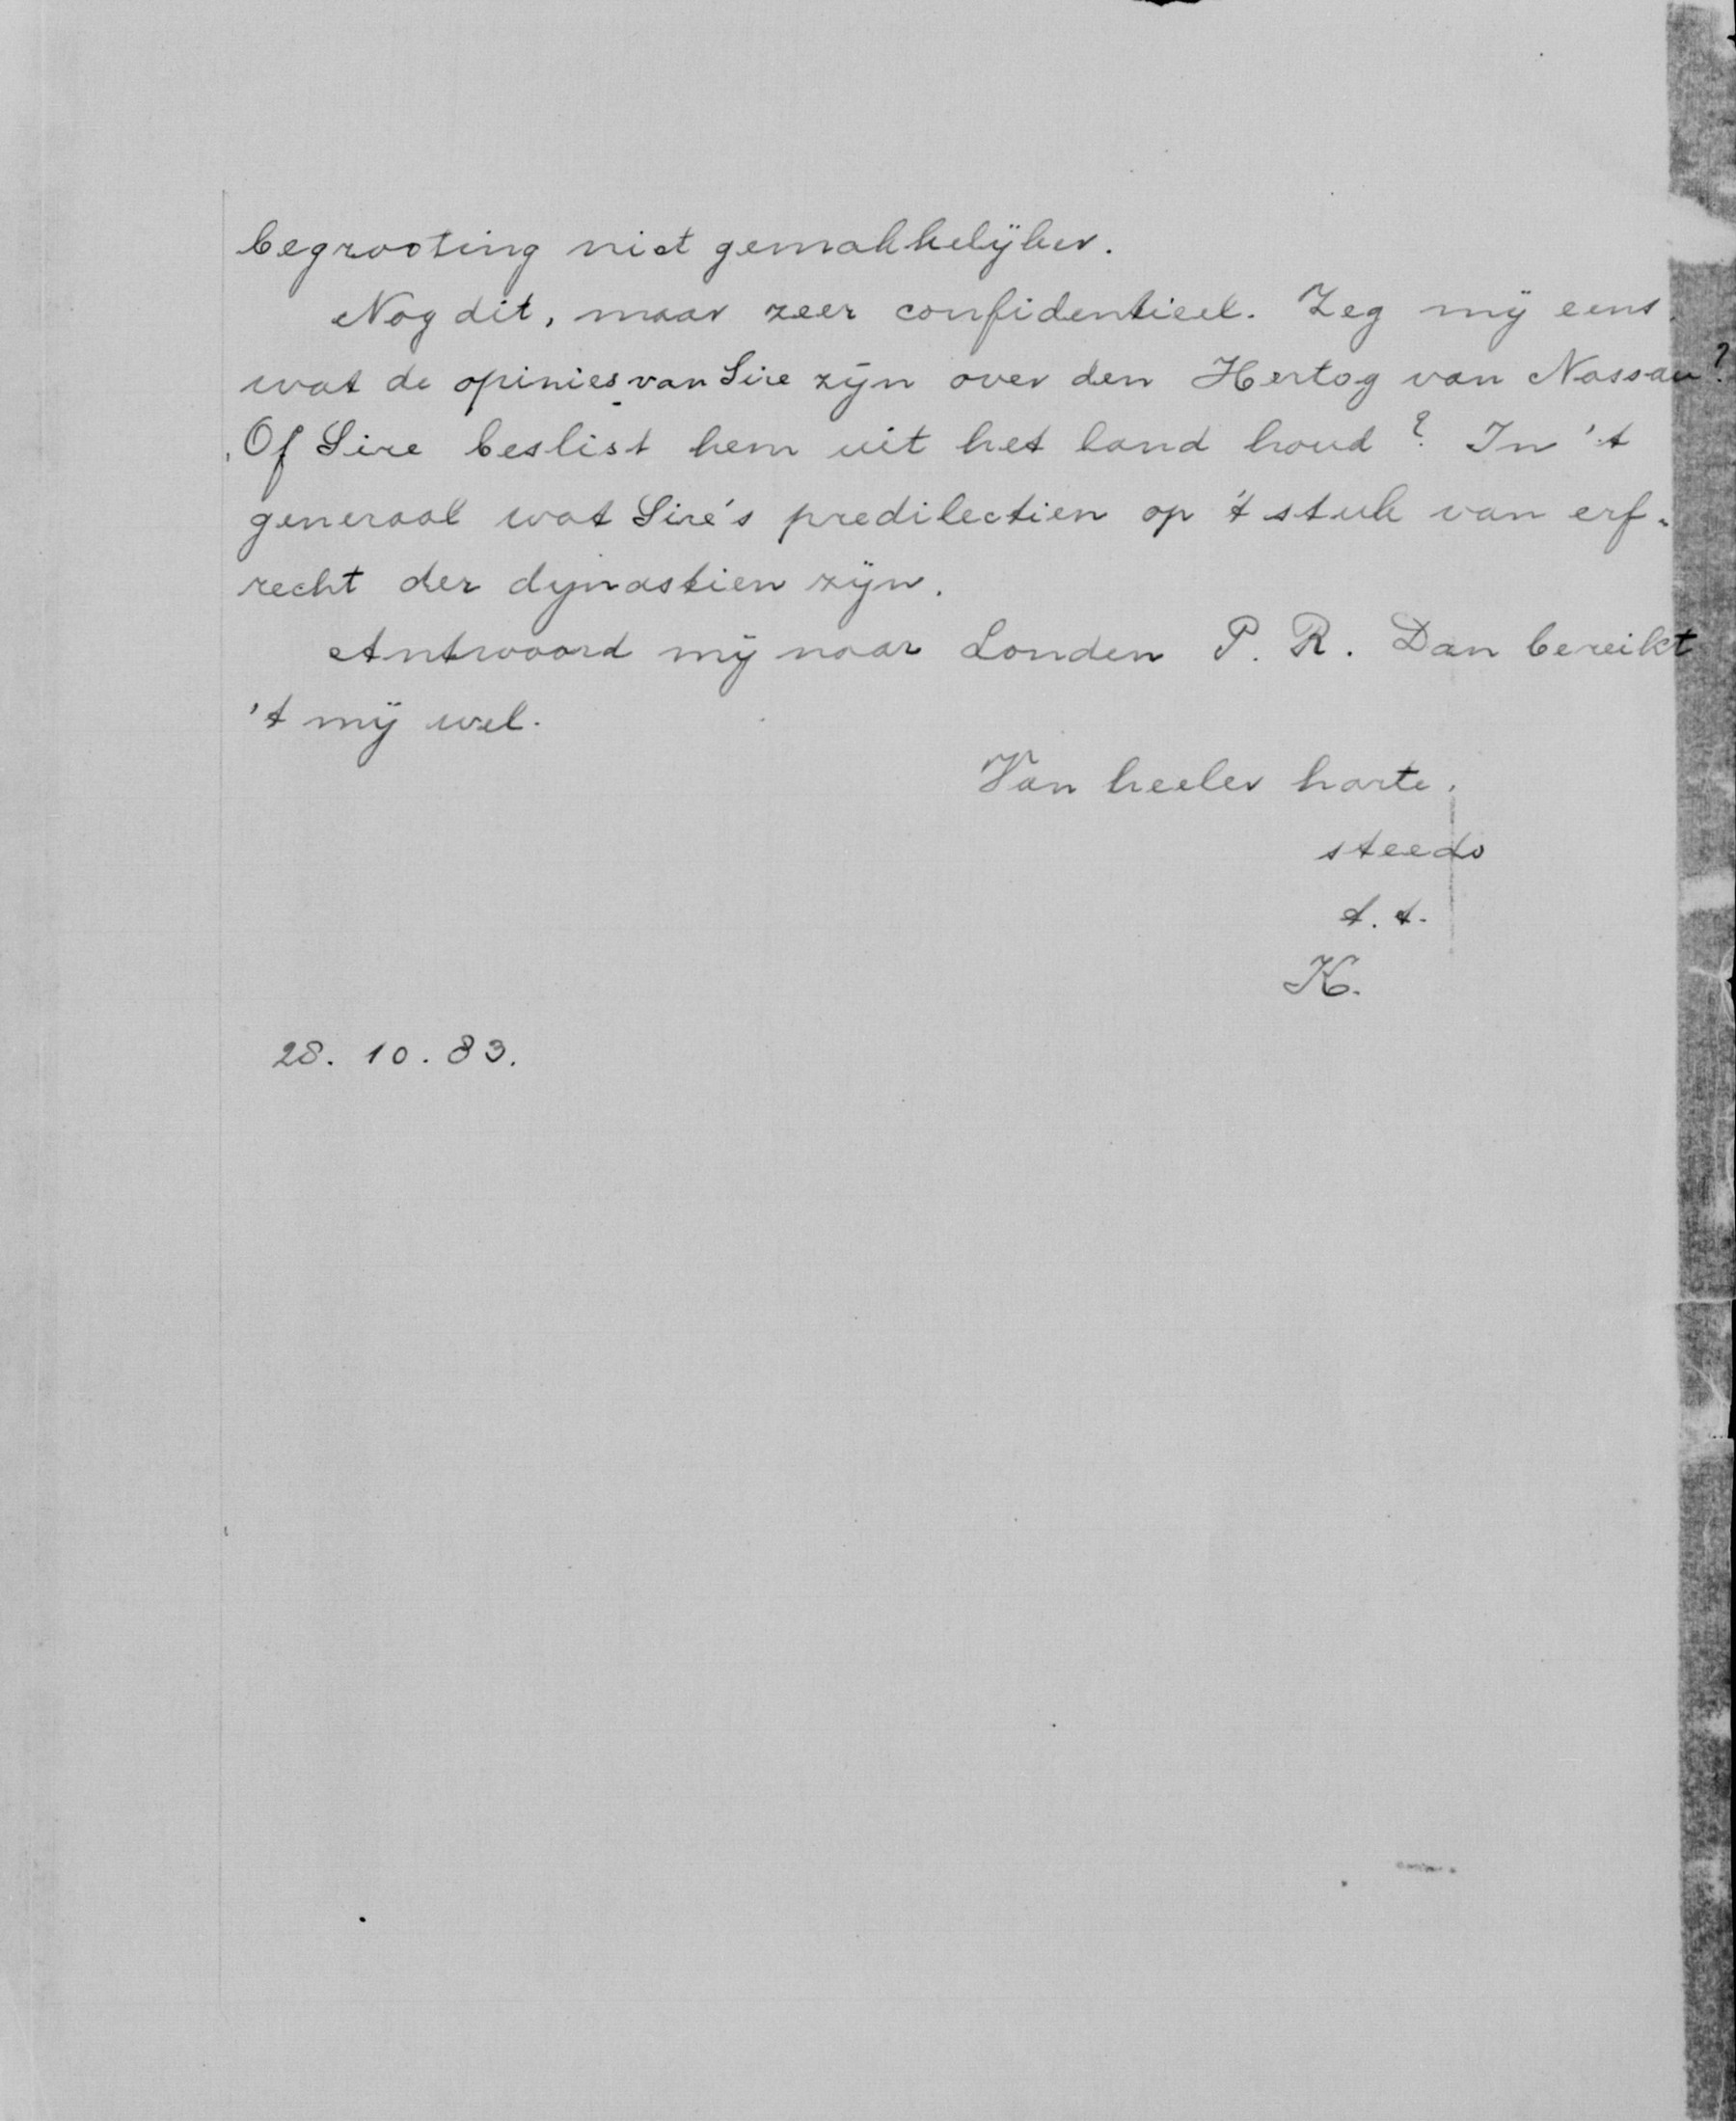 begrooting niet gemakkelijker.
Nog dit, maar zeer confidentieel. Zeg mij eens
wat de opinies van Sire zijn over den Hertog van Nassau?
Of Sire beslist hem uit het land houd? In 't
generaal wat Sire's predilectien op 't stuk van erf-
recht der dynastien zijn.
Antwoord mij naar Londen P. R. Dan bereikt
't mij wel.
Van heeler harte,
steeds
t. t.
K.
28. 10. 83.